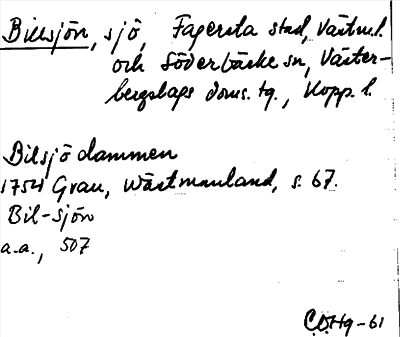 Billsjön, sjö, Fagersta stad, Västml.
och Söderbärke sn, Väster-
bergslags doms. tg., Kopp. l.
Bilsjödammen
1754 Grau, Wästmanland, s. 67.
Bil-sjön
a.a., 507